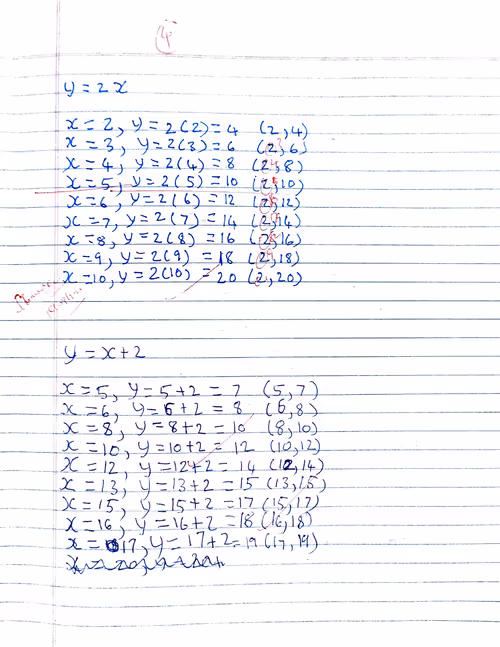 y = 2x
x = 2, y = 2(2) = 4 (2,4)
x = 3, y = 2(3) = 6 (2,6)
x = 4, y = 2(4) = 8 (2,8)
x = 5, y = 2(5) = 10 (2,10)
x = 6, y = 2(6) = 12 (2,12)
x = 7, y = 2(7) = 14 (2,14)
x = 8, y = 2(8) = 16 (2,16)
x = 9, y = 2(9) = 18 (2,18)
x = 10, y = 2(10) = 20 (2,20)
y = x + 2
x = 5, y = 5 + 2 = 7 (5,7)
x = 6, y = 6 + 2 = 8 (6,8)
x = 8, y = 8 + 2 = 10 (8,10)
x = 10, y = 10 + 2 = 12 (10,12)
x = 12, y = 12 + 2 = 14 (12,14)
x = 13, y = 13 + 2 = 15 (13,15)
x = 15, y = 15 + 2 = 17 (15,17)
x = 16, y = 16 + 2 = 18 (16,18)
x = 17, y = 17 + 2 = 19 (17,19)